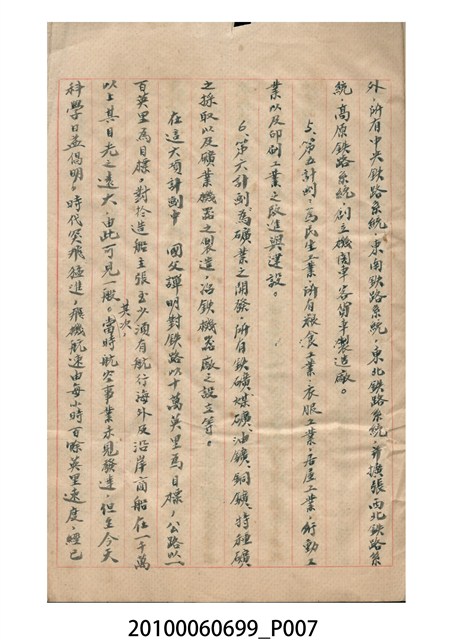 外，所有中央鉄路系統，東南鉄路系統，東北鉄路系統，並擴張西北鉄路系
統，高原鉄路系統，創立機関車客貨車製造廠。
5、第五計劃，為民生工業，所有粮食工業，衣服工業，居屋工業，行動工
業以及印刷工業之改進與建設。
6、第六計劃為礦業之開發，所有鉄礦，煤礦，油礦，銅礦，特種礦
之採取以及礦業機器之製造，冶鉄機器廠之設立等。
在這大項計劃中　國父擇明對鉄路以十萬英里為目標，公路以一
百英里為目標，對於造船主張至少須有航行海外及沿岸商船在一千萬
以上其目光之遠大，由此可見一般。當時航空事業未見發達，但至今天
其次，
科學日益倡明。時代突飛猛進，飛機航速由每小時百餘英里速度，經已
20100060699_P007